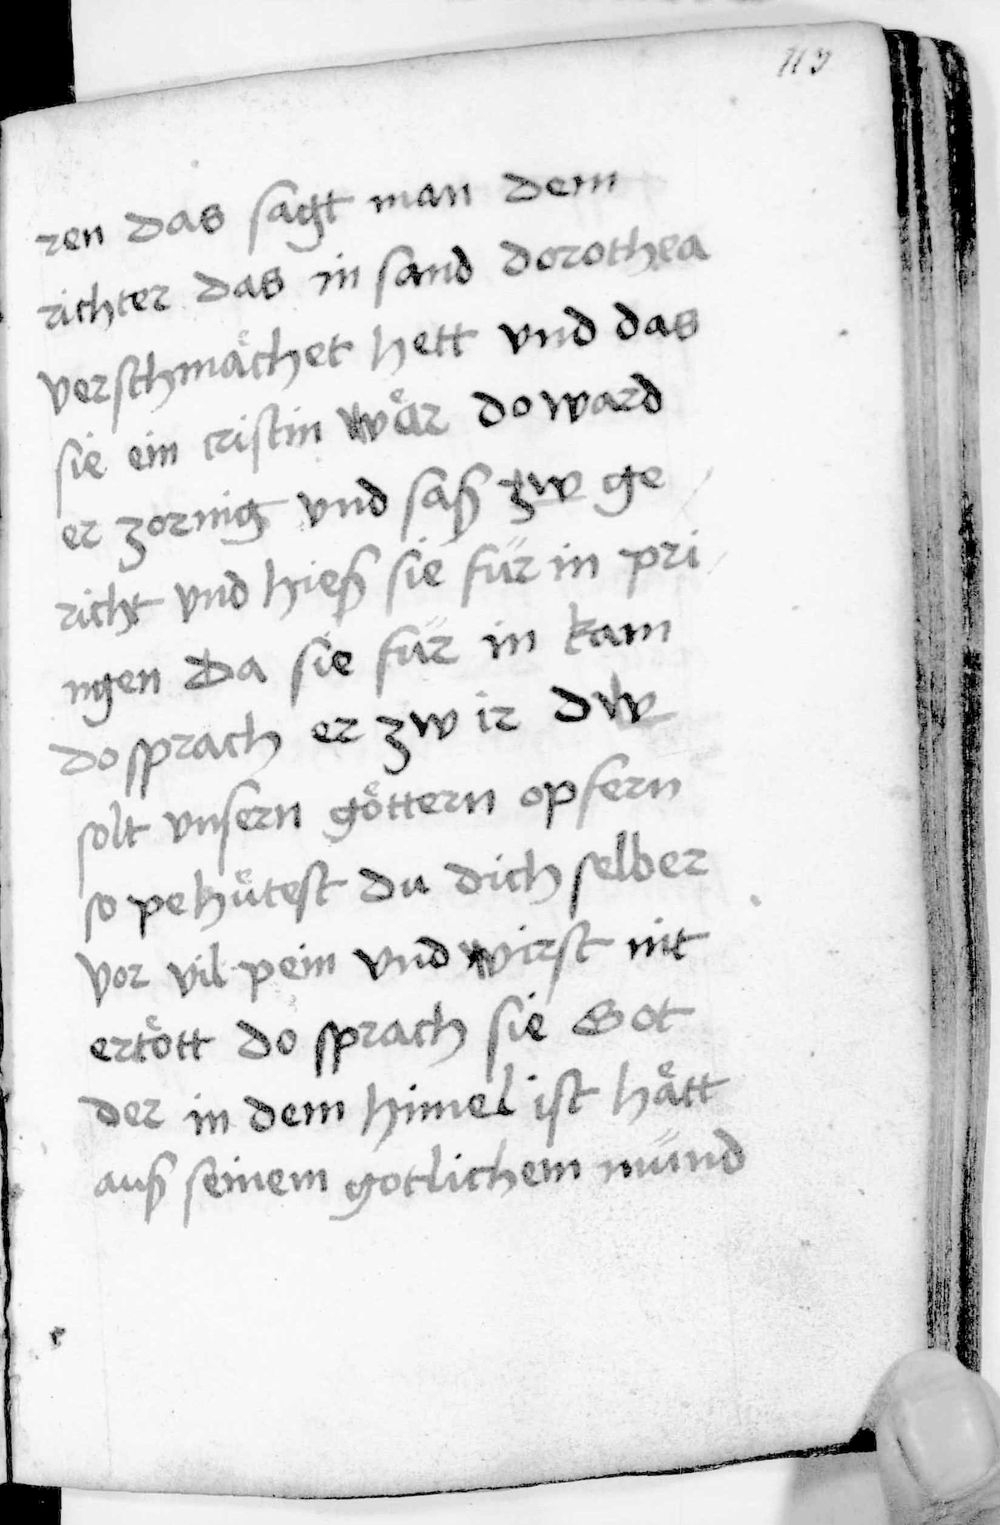 ren das sagt man dem
richter das in sand dorothea
verschmåchet hett vnd das
sie ein cristin wår do ward
er zornig vnd saß zw ge
richt vnd hieß sie für in pri
ngen Da sie für in kam
do sprach er zw ir dw
solt vnsern göttern opfern
so pehütest du dich selber
vor vil pein vnd wirst nit
ertött do sprach sie Got
der in dem himel ist hått
auß seinem gotlichem münd